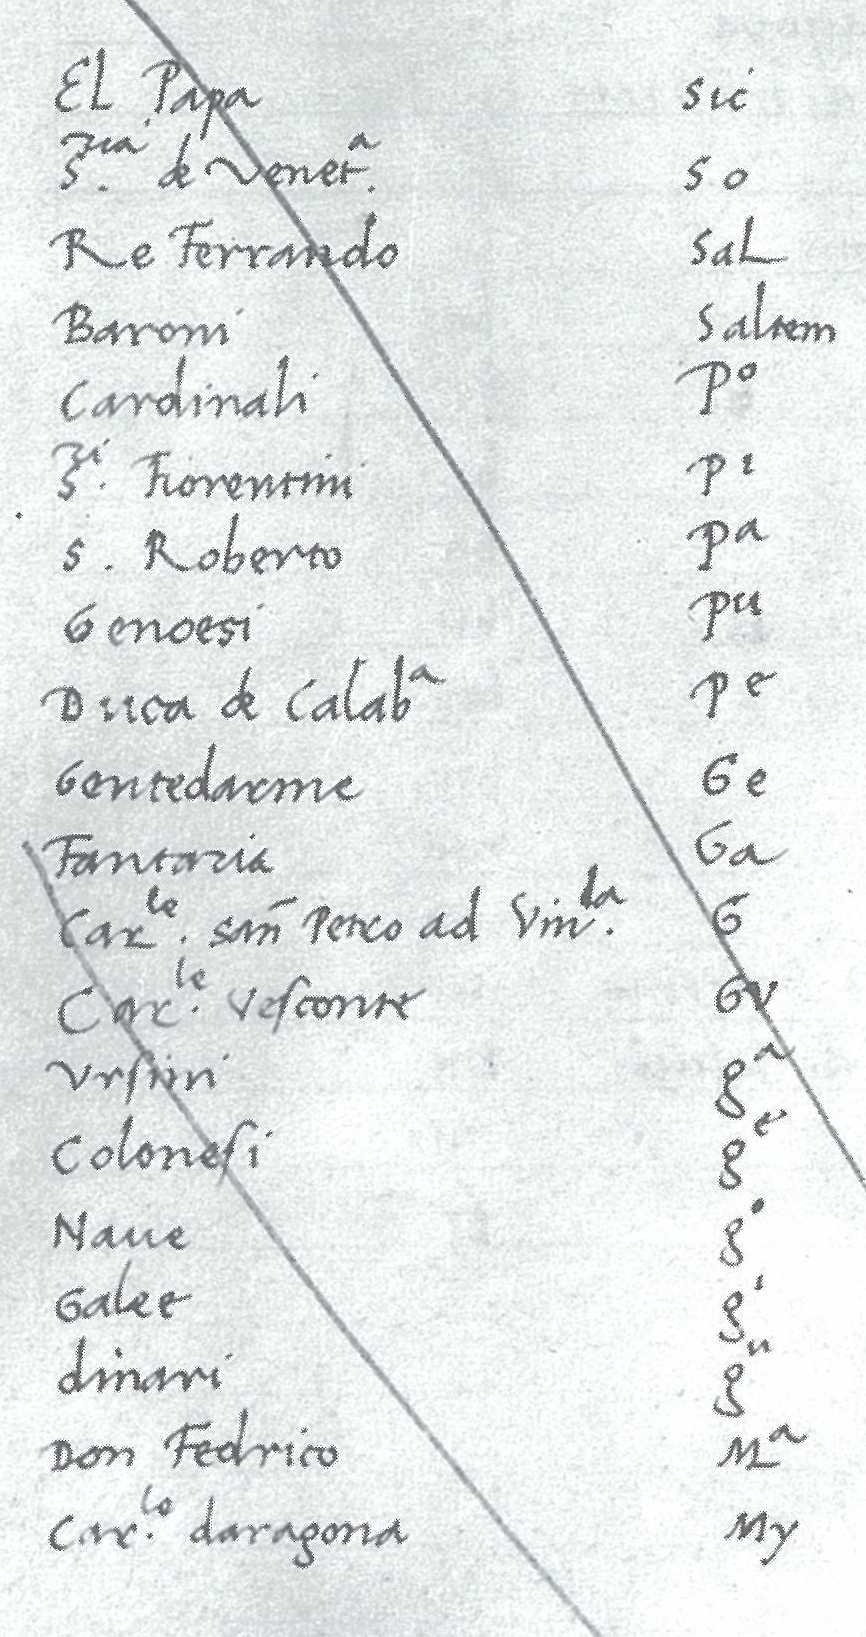 El Papa sic
S.ria de Venet.a so
Re Ferrando sal
Baroni saltem
Cardinali po
S.ri Fiorentini pi
S. Roberto pa
Genoesi pu
Duca de Calaba pe
Gentedarme Ge
Fantaria Ga
Car.le san Petro ad Vin.la G
Car.le Vesconte GV
Vrsini ga
Colonesi ge
Naue go
Galee gi
dinari gu
Don Fedrico Ma
Car.le daragona My